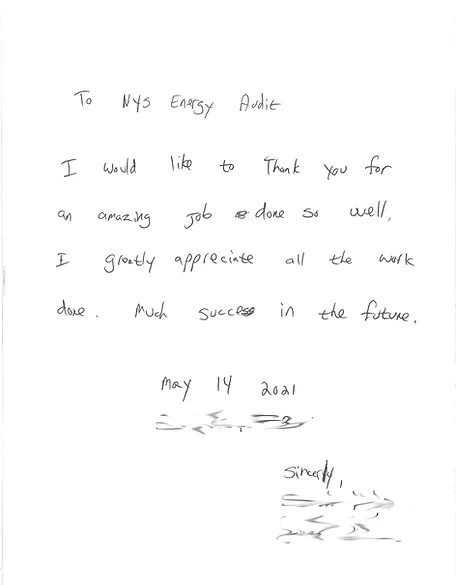 To NYS Energy Audit
I would like to Thank you for
an amazing job done so well.
I greatly appreciate all the work
done. Much success in the future.
May 14 2021
Sincerly,